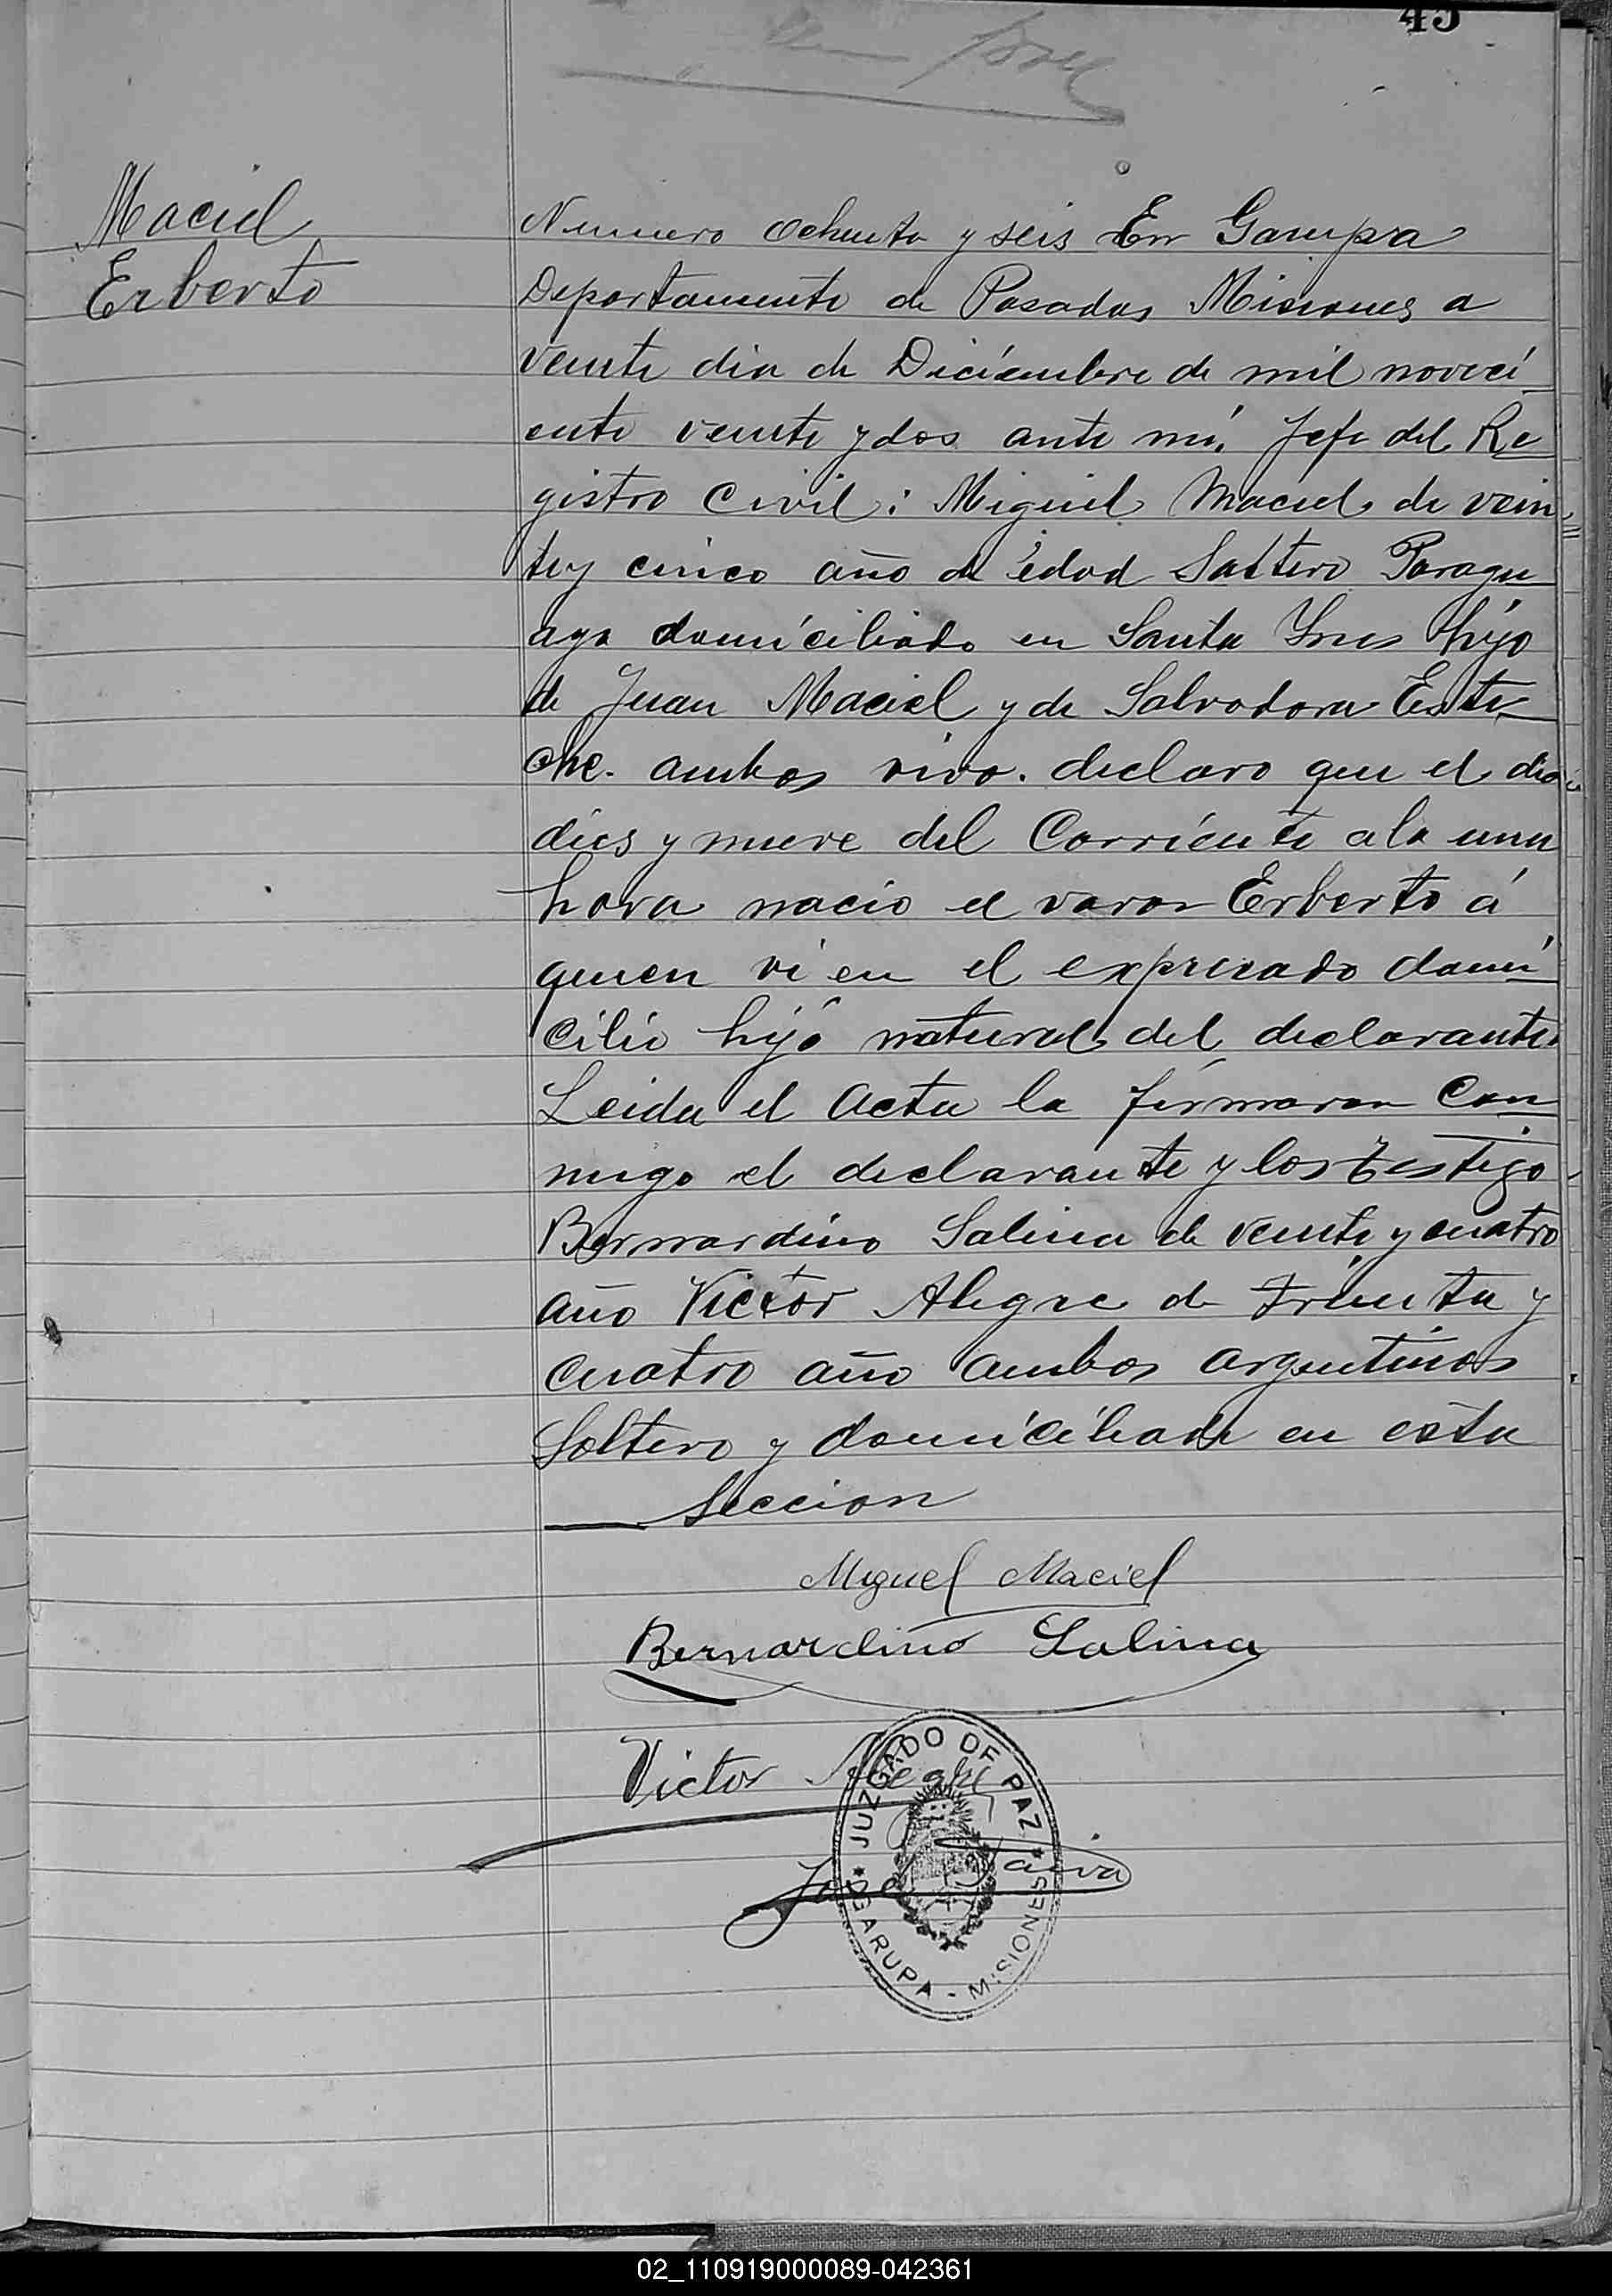 45
Maciel
Erberto
Numero ochenta y seis En Garupa
Departamento de Posadas Misiones a
veinte dia de Diciembre de mil noveci
ento veinte y dos ante mi. Jefe del Re
gistro Civil: Miguel Maciel de vein
tey cinco año de edad Soltero Paragu
ayo domiciliado en Santa Ynes hijo
de Juan Maciel y de Salvadora Este
che. ambos vivo. declaro que el dia
dies y nueve del Corriente a la una
hora nacio el varon Erberto á
quien vi en el expresado domi
cilio hijo natural del declarante.
Leida el acta la firmaron Con
migo el declarante y los testigo
Bernardino Salina de veinte y cuatro
año Victor Alegre de trienta y
cuatro año ambos argentinos
Soltero y domiciliado en esta
Seccion
Miguel Maciel
Bernardino Salina
Victor Alegre
JUZGADO DE PAZ
MISIONES
02_110919000089-042361